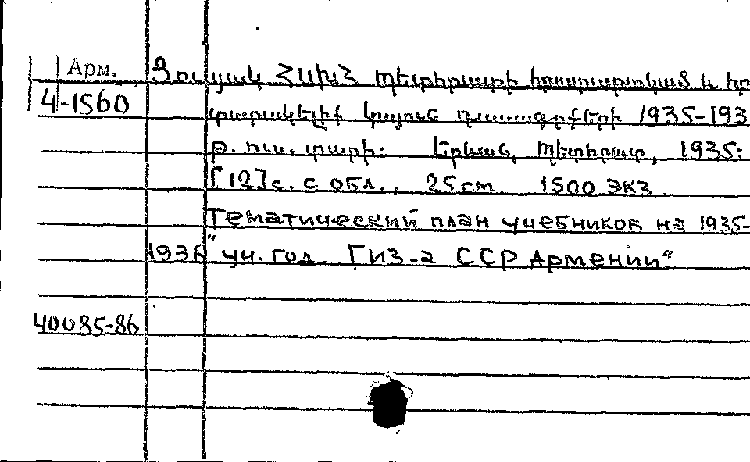 Арм. Ցուցակ ՀԱԽՀ Պետհրատի հրատարակած և հր
4-1560 տարակելիք կայուն դասագրքերի 1935-193
թ. ուս. տարի: Երևան, Պետհրատ, 1935:
[12] с. с обл., 25 см 1500 экз.
Тематический план учебников на 1935-
1936 "уч. год. ГИЗ-а ССР Армении"
40085-86